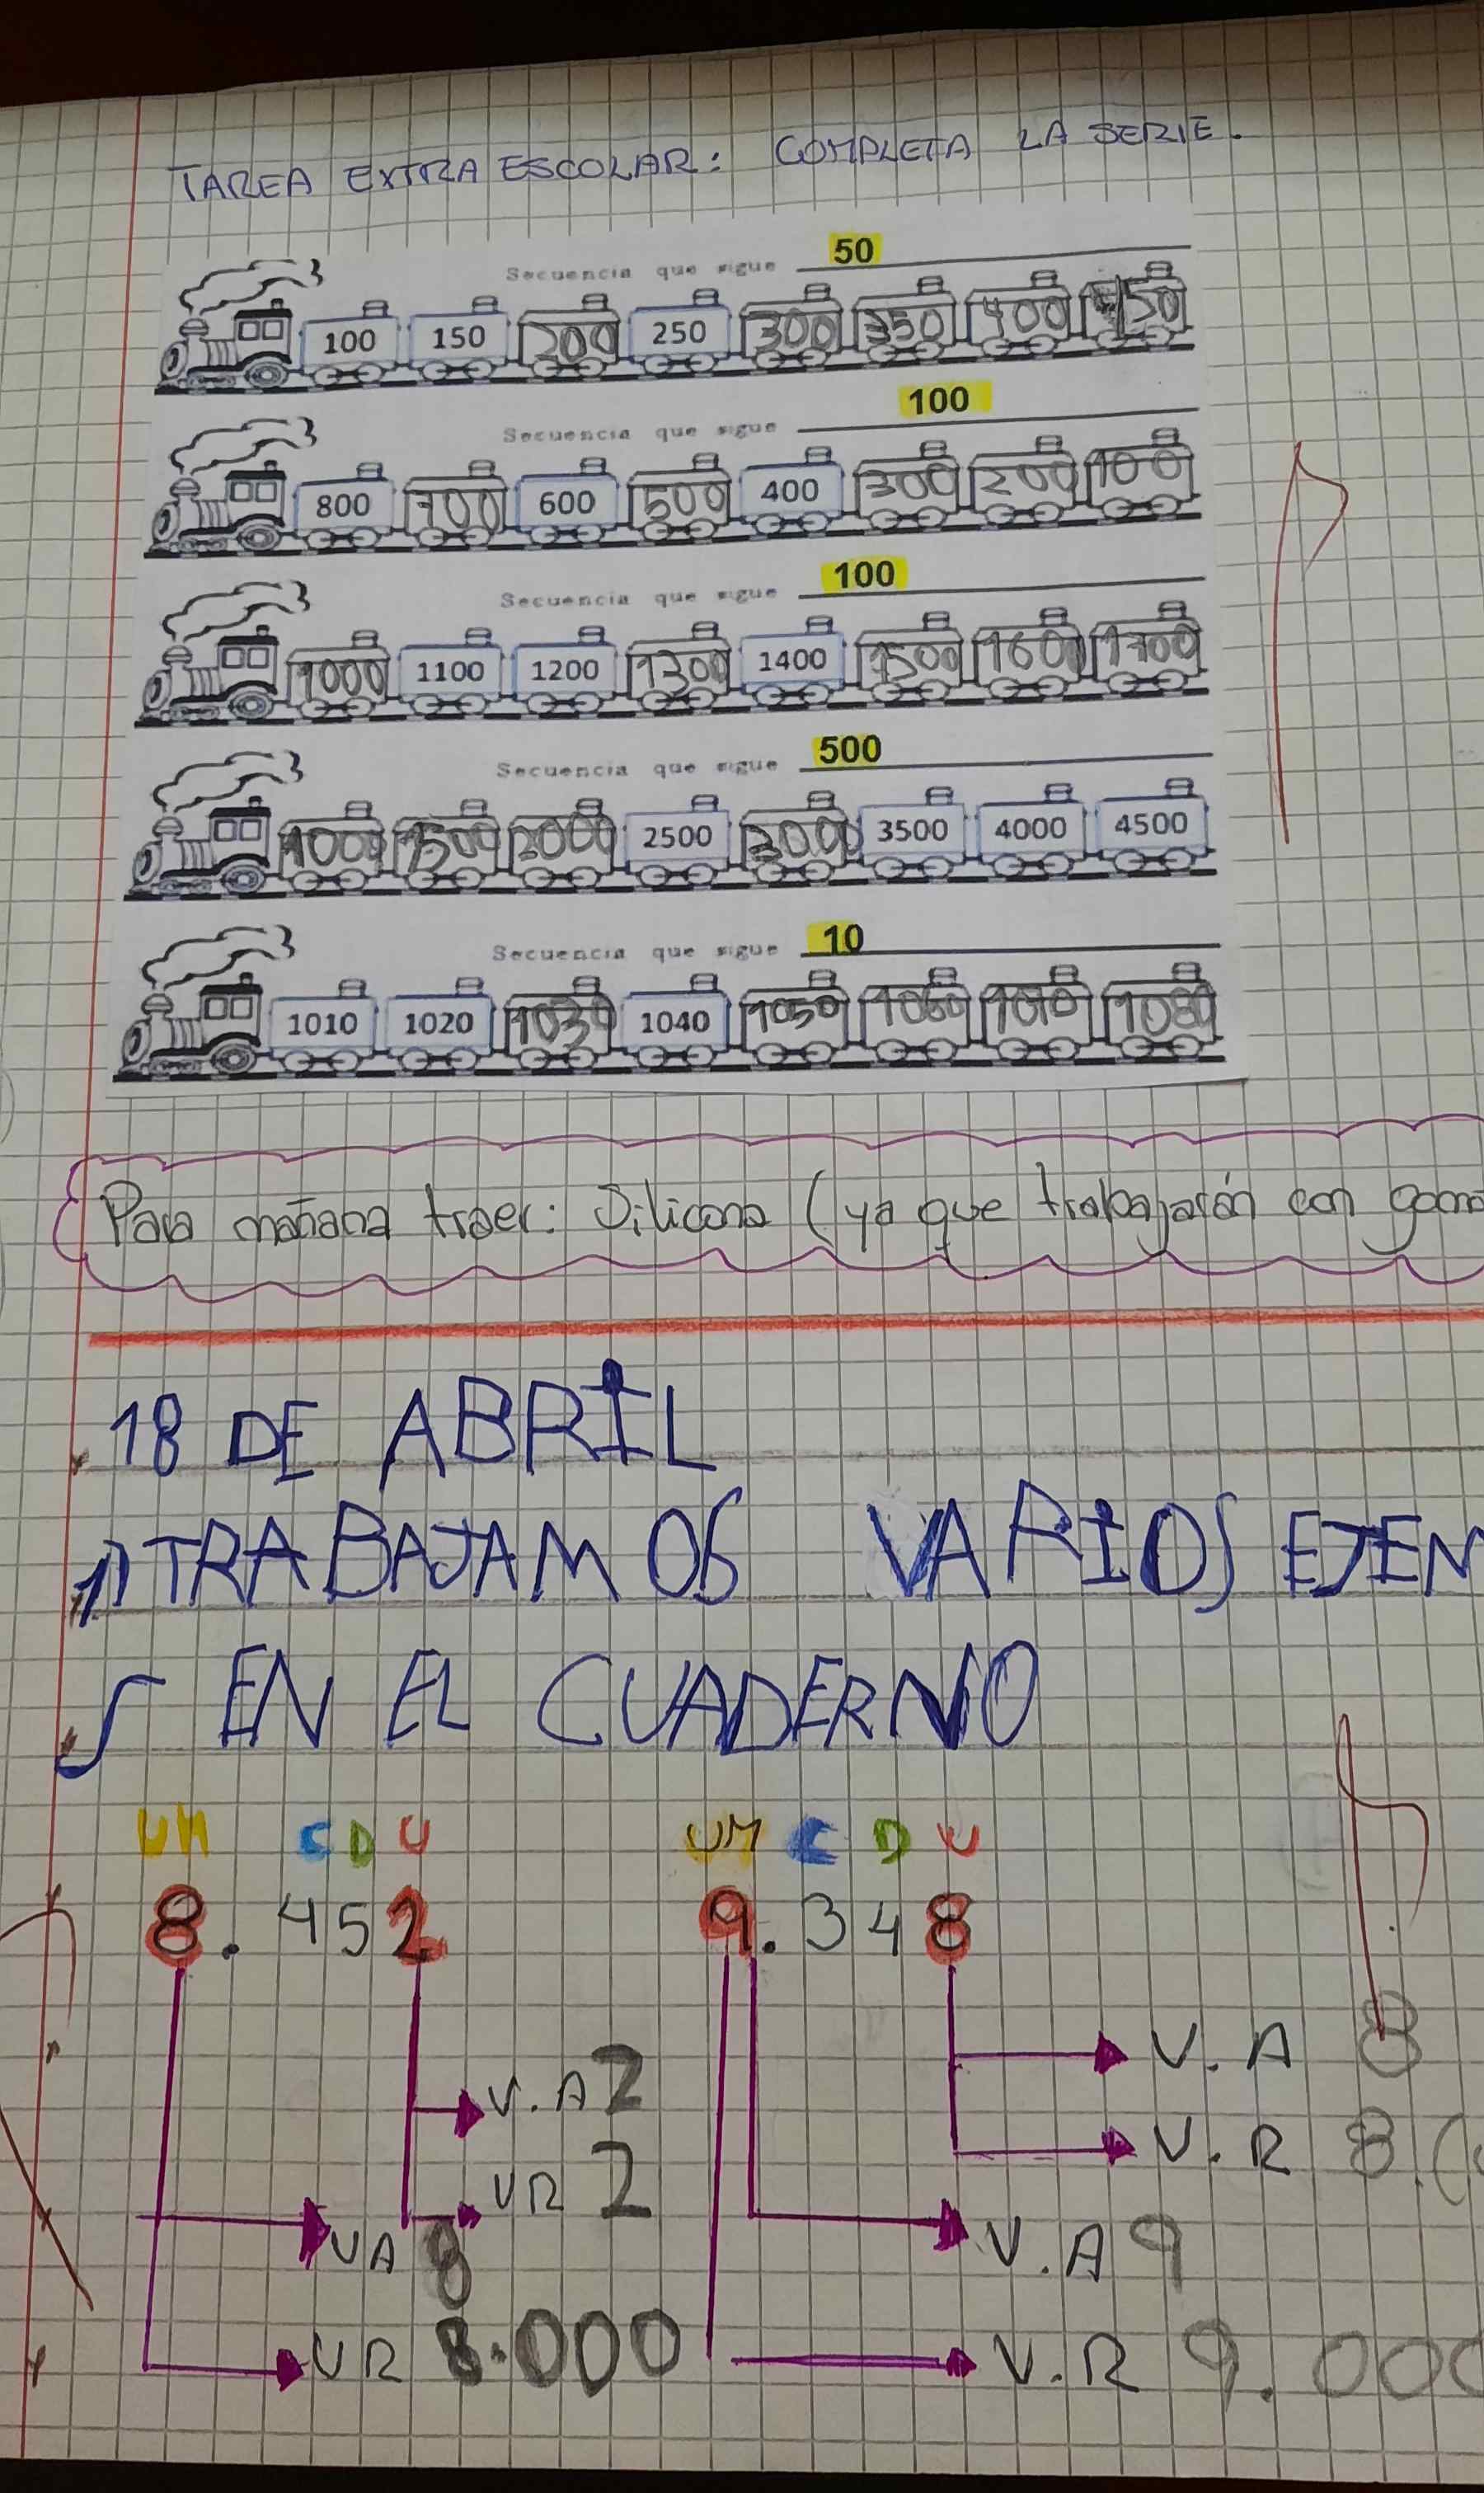 TAREA EXTRA ESCOLAR: COMPLETA LA SERIE.
Secuencia que sigue 50
100 150 200 250 300 350 400 450
Secuencia que sigue 100
800 700 600 500 400 300 200 100
Secuencia que sigue 100
1000 1100 1200 1300 1400 1500 1600 1700
Secuencia que sigue 500
1000 1500 2000 2500 3000 3500 4000 4500
Secuencia que sigue 10
1010 1020 1030 1040 1050 1060 1070 1080
Para mañana traer: Silicona (ya que trabajarán con
18 DE ABRIL
1) TRABAJAMOS VARIOS EJEM
S EN EL CUADERNO
UM C D U UM C D U
8.452 9.348
V.A 8
V.A 2
V.R 8.
VR 2
VA 8
V.A 9
VR 8.000
V.R 9.000